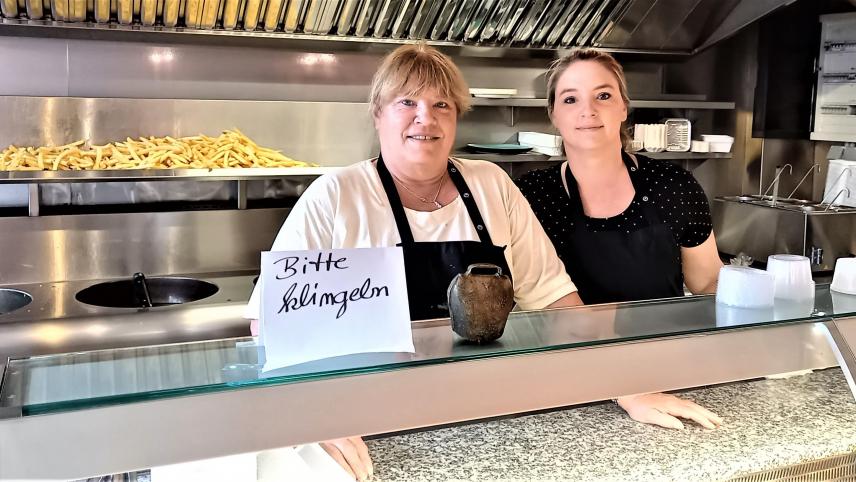 Bitte
klingeln